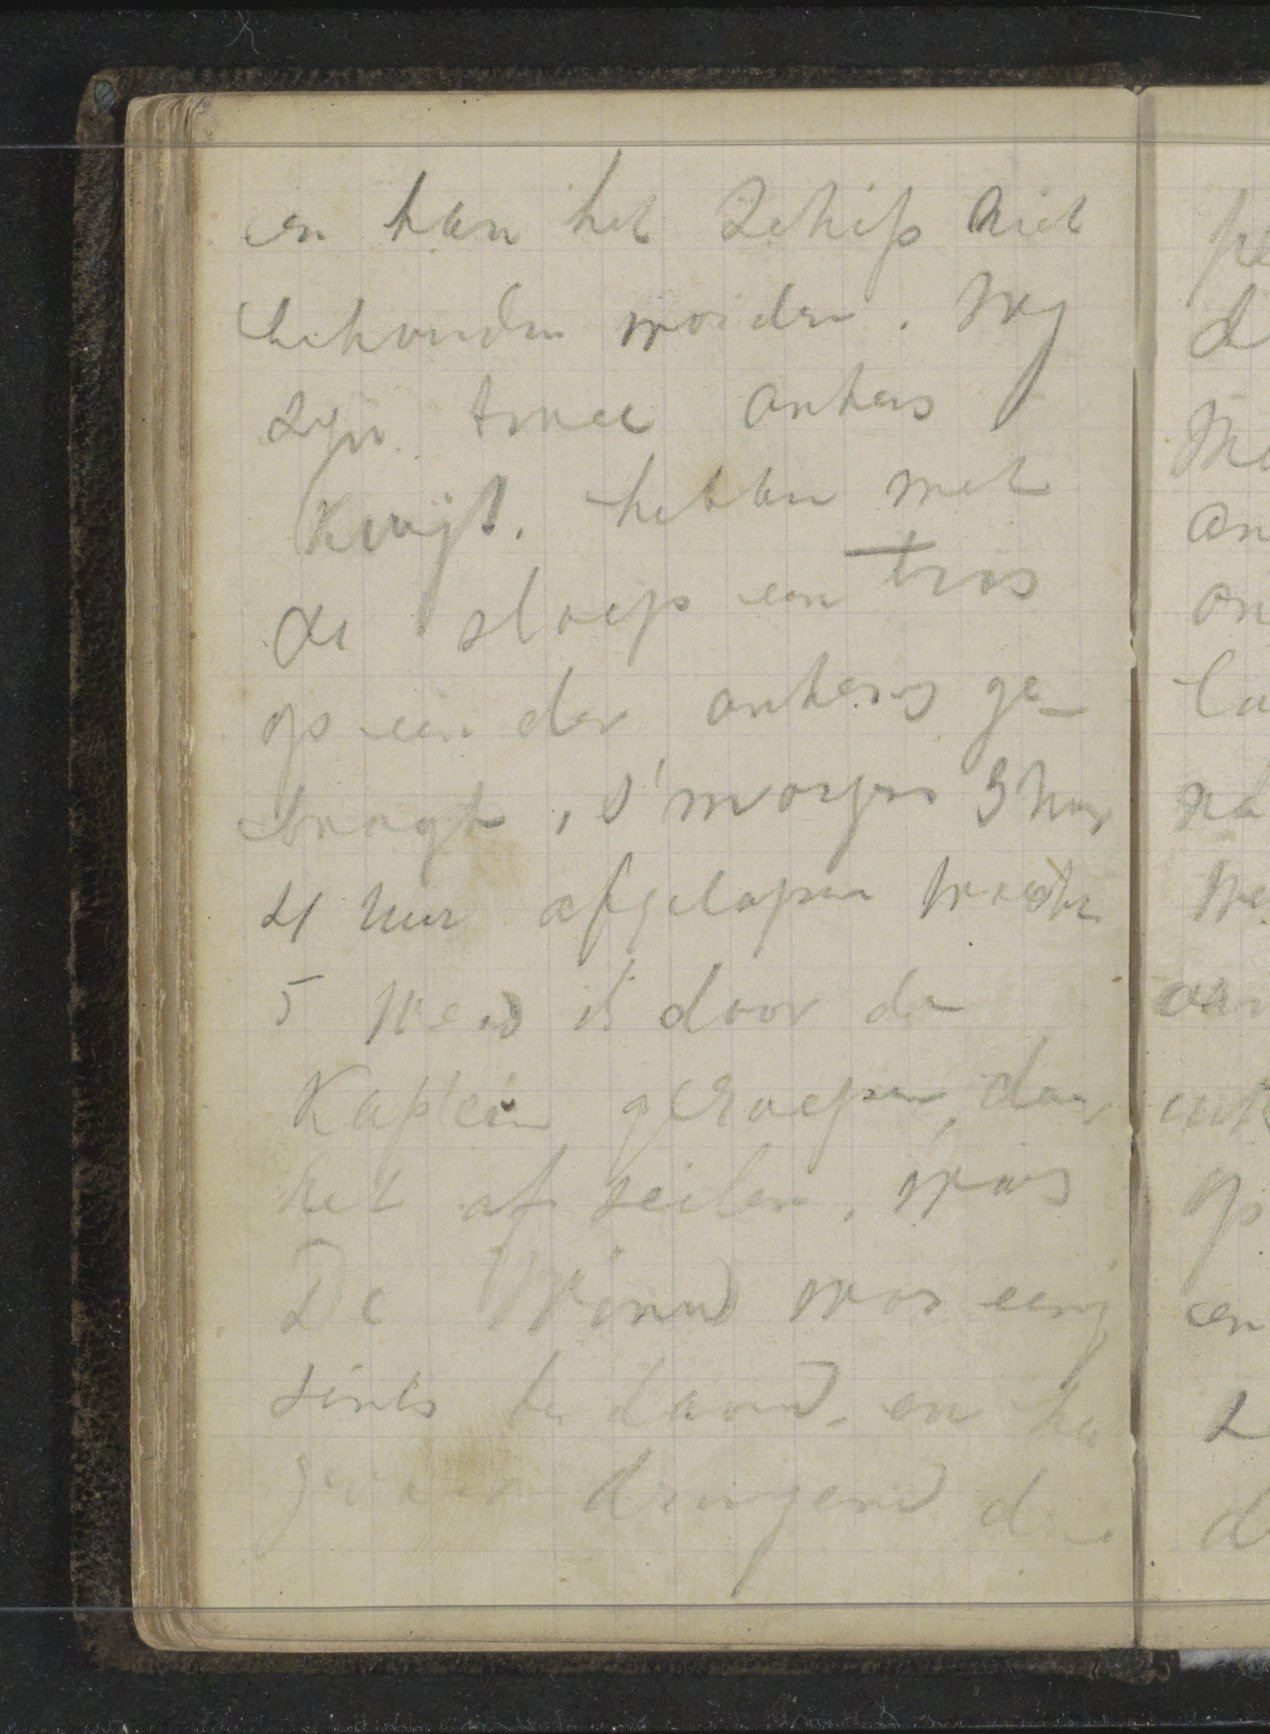 en kan het Schip niet
behouden worden. Wij
zijn twee ankers
kwijt. hebben met
de sloep een tros
op een der ankers ge-
bragt, s'morgens 3 uur
4 uur afgelopen
5 werd ik door de
Kaptein geroepen, daar
het af zeilen, was
De Wind was eenig
sints bedaard. en
gevaar dringend